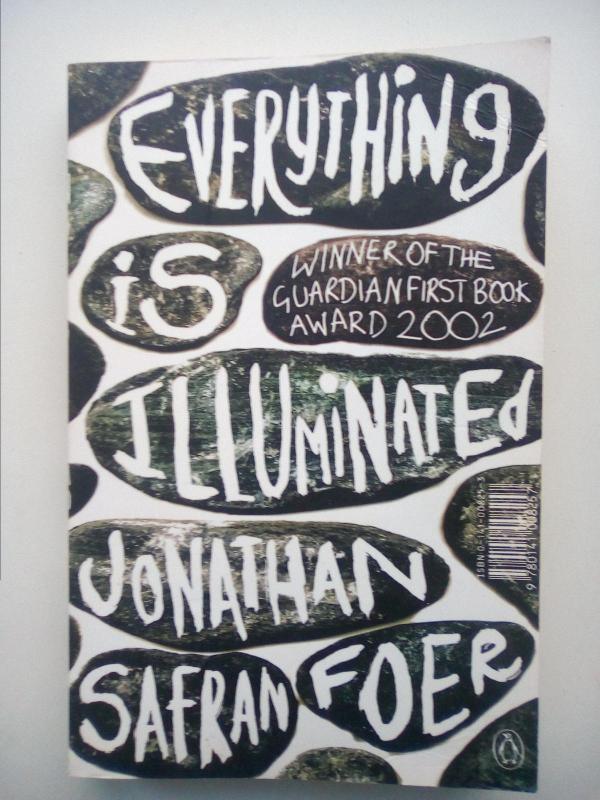 EVERYTHING
iS
WINNER OF THE
GUARDIAN FIRST BOOK
AWARD 2002
ILLUMiNATEd
JONATHAN
SAFRAN FOER
ISBN 0-141-00825-3
9 780141 008257